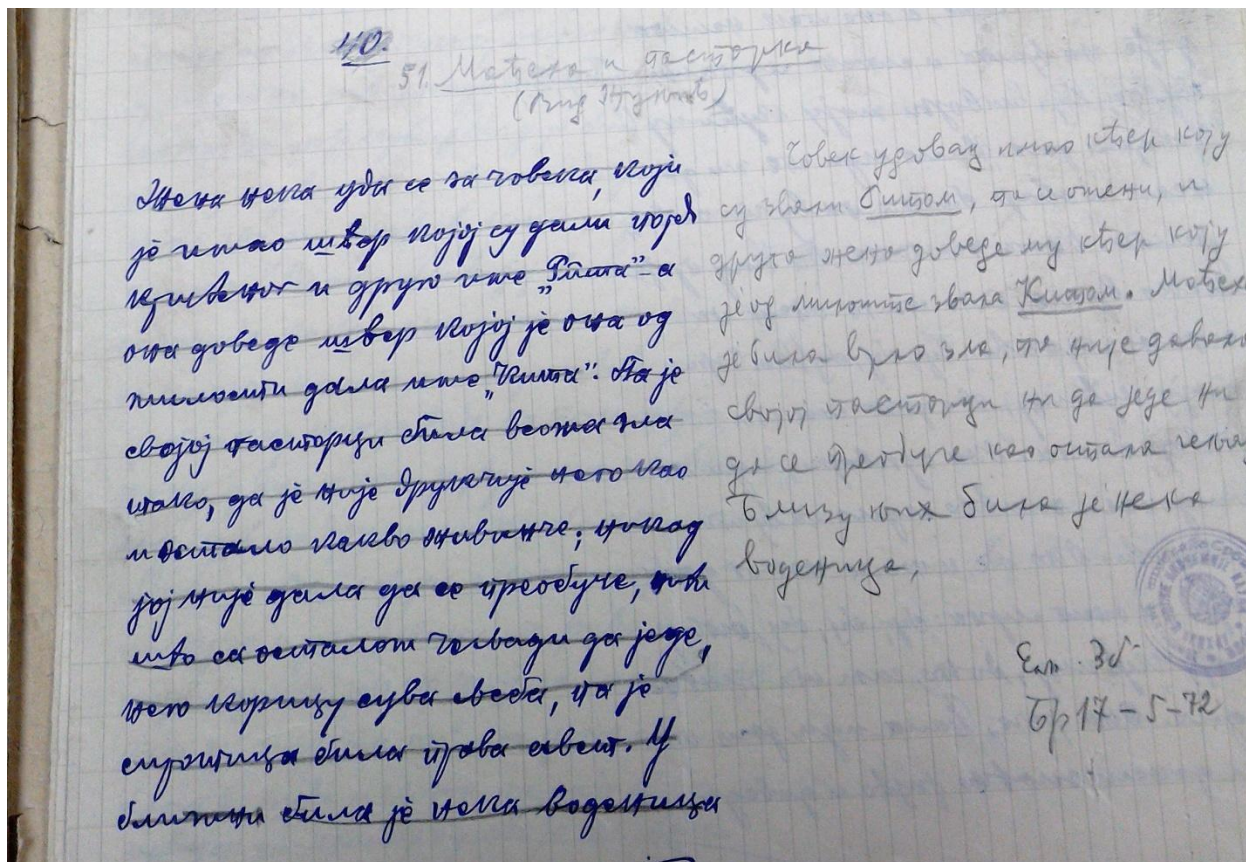 40.
51. Маћеха и пасторка
(Вид Жунић)
Жена нека уда се за човека, који
је имао шћер којој су дали поред
крштеног и друго име „Рита" а
она доведе шћер којој је она од
милости дала име „Кита". Па је
својој пасторци била веома зла
тако, да је није друкчије него као
и остало какво живинче; никад
јој није дала да се преобуче, нити
што са осталом чељади да једе,
него корицу сува хлеба, па је
сиротица била права авет. У
близини била је нека воденица
Човек удовац имао кћер коју
су звали Битом, па се ожени, и
друга жена доведе му кћер коју
је од милоште звала Китом. Маћеха
је била врло зла, па није давала
својој пасторци ни да једе ни
да се преобуче као остала чељад
Близу њих била је нека
воденица,
Етн. Зб.
Бр 17-5-72